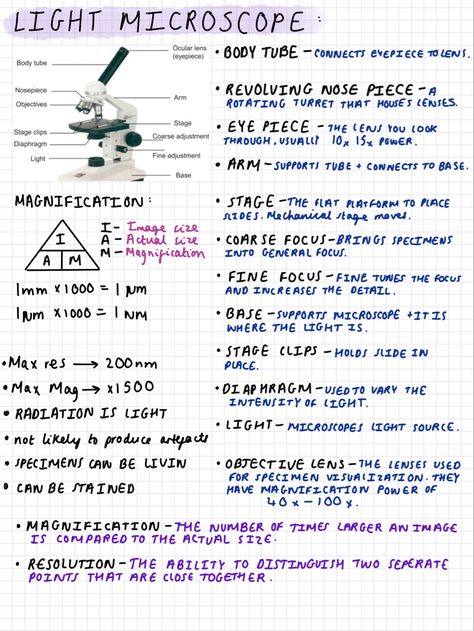 LIGHT MICROSCOPE:
Body tube
Nosepiece
Objectives
Stage clips
Diaphragm
Light
Ocular lens
(eyepiece)
Arm
Stage
Coarse adjustment
Fine adjustment
Base
• BODY TUBE – CONNECTS EYEPIECE TO LENS.
• REVOLVING NOSE PIECE – A
ROTATING TURRET THAT HOUSES LENSES.
• EYE PIECE – THE LENS YOU LOOK
THROUGH, USUALLY 10x 15x POWER.
• ARM – SUPPORTS TUBE + CONNECTS TO BASE.
MAGNIFICATION:
I
A M
I – Image size
A – Actual size
M – Magnification
1mm x1000 = 1 µm
1µm x1000 = 1 nm
• Max res → 200nm
• Max Mag → x1500
• RADIATION IS LIGHT
• not likely to produce artefacts
• SPECIMENS CAN BE LIVIN
• CAN BE STAINED
• STAGE – THE FLAT PLATFORM TO PLACE
SLIDES. Mechanical stage moves.
• COARSE FOCUS – BRINGS SPECIMENS
INTO GENERAL FOCUS.
• FINE FOCUS – FINE TUNES THE FOCUS
AND INCREASES THE DETAIL.
• BASE – SUPPORTS MICROSCOPE + IT IS
WHERE THE LIGHT IS.
• STAGE CLIPS – HOLDS SLIDE IN
PLACE.
• DIAPHRAGM – USED TO VARY THE
INTENSITY OF LIGHT.
• LIGHT – MICROSCOPES LIGHT SOURCE.
• OBJECTIVE LENS – THE LENSES USED
FOR SPECIMEN VISUALIZATION. THEY
HAVE MAGNIFICATION POWER OF
40x – 100x.
• MAGNIFICATION – THE NUMBER OF TIMES LARGER AN IMAGE
IS COMPARED TO THE ACTUAL SIZE.
• RESOLUTION – THE ABILITY TO DISTINGUISH TWO SEPERATE
POINTS THAT ARE CLOSE TOGETHER.